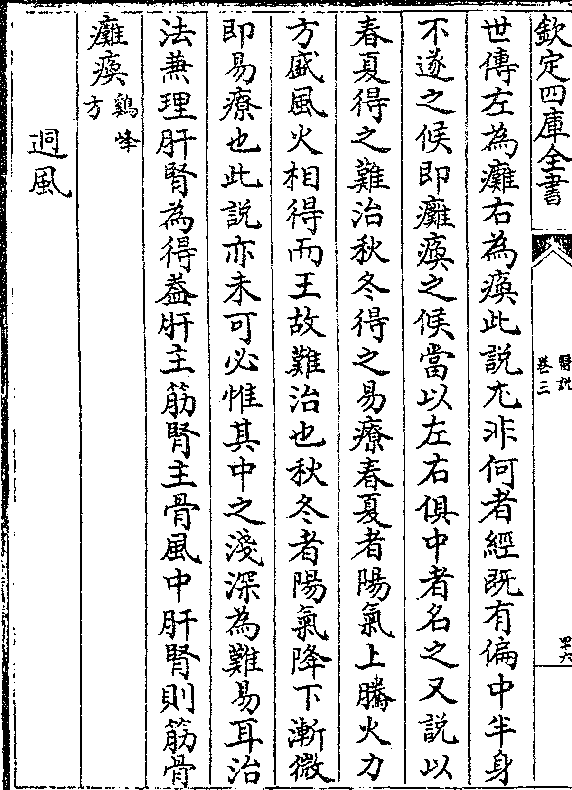 欽定四庫全書
醫說
卷三
四十六
世傳左為癱右為瘓此說尤非何者經既有偏中半身
不遂之候即癱瘓之候當以左右俱中者名之又說以
春夏得之難治秋冬得之易療春夏者陽氣上騰火力
方盛風火相得而王故難治也秋冬者陽氣降下漸微
即易療也此說亦未可必惟其中之淺深為難易耳治
法兼理肝腎為得葢肝主筋腎主骨風中肝腎則筋骨
癱瘓雞峰方
迵風